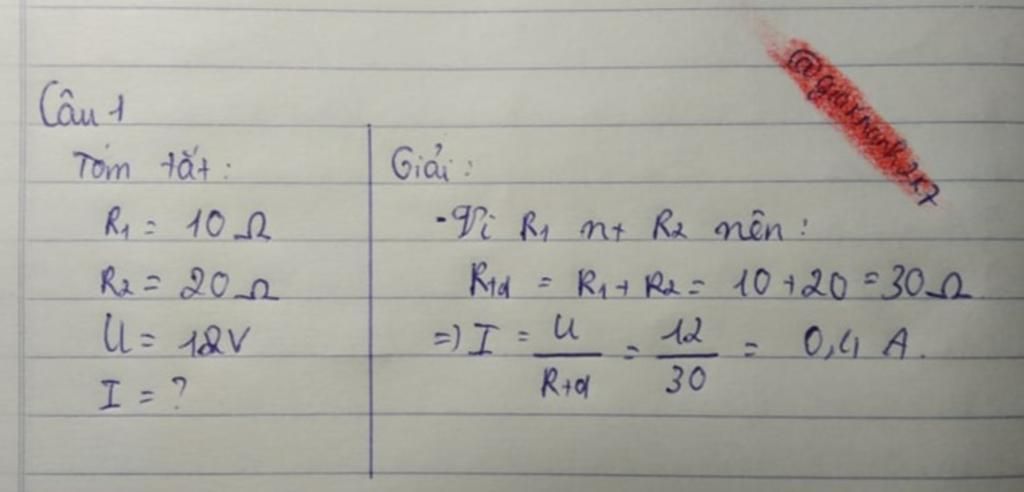 Câu 1
Tóm tắt:
R1 = 10 Ω
R2 = 20 Ω
U = 12V
I = ?
Giải:
- Vì R1 nt R2 nên:
Rtđ = R1 + R2 = 10 + 20 = 30 Ω
=) I = U / Rtđ = 12 / 30 = 0,4 A.